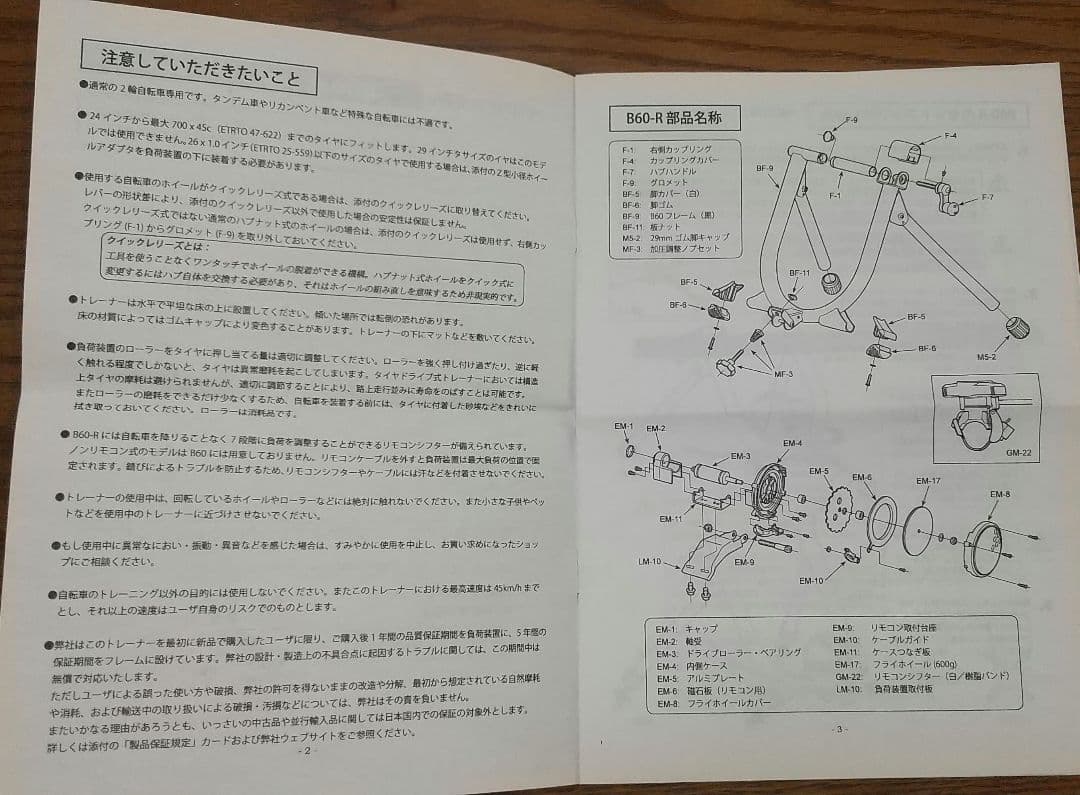 注意していただきたいこと
●通常の2輪自転車専用です。タンデム車やリカンベント車など特殊な自転車には不適です。
●24インチから最大700x45c（ETRTO 47-622）までのタイヤにフィットします。29インチタサイズのイヤはこのモデ
ルでは使用できません。26x1.0インチ(ETRTO 25-559)以下のサイズのタイヤで使用する場合は、添付のZ型小径ホイー
ルアダプタを負荷装置の下に装着する必要があります。
●使用する自転車のホイールがクイックレリーズ式である場合は、添付のクイックレリーズに取り替えてください。
レバーの形状差により、添付のクイックレリーズ以外で使用した場合の安定性は保証しません。
クイックレリーズ式ではない通常のハブナット式のホイールの場合は、添付のクイックレリーズは使用せず、右側カッ
プリング(F-1)からグロメット(F-9)を取り外しておいてください。
クイックレリーズとは：
工具を使うことなくワンタッチでホイールの脱着ができる機構。ハブナット式ホイールをクイック式に
変更するにはハブ自体を交換する必要があり、それはホイールの組み直しを意味するため非現実的です。
●トレーナーは水平で平坦な床の上に設置してください。傾いた場所では転倒の恐れがあります。
床の材質によってはゴムキャップにより変色することがあります。トレーナーの下にマットなどを敷いてください。
●負荷装置のローラーをタイヤに押し当てる量は適切に調整してください。ローラーを強く押し付け過ぎたり、逆に軽
く触れる程度でしかないと、タイヤは異常磨耗を起こしてしまいます。タイヤドライブ式トレーナーにおいては構造
上タイヤの摩耗は避けられませんが、適切に調節することにより、路上走行並みに寿命をのばすことは可能です。
またローラーの磨耗をできるだけ少なくするため、自転車を装着する前には、タイヤに付着した砂埃などをきれいに
拭き取っておいてください。ローラーは消耗品です。
●B60-Rには自転車を降りることなく7段階に負荷を調整することができるリモコンシフターが備えられています。
ノンリモコン式のモデルはB60には用意しておりません。リモコンケーブルを外すと負荷装置は最大負荷の位置で固
定されます。錆びによるトラブルを防止するため、リモコンシフターやケーブルには汗などを付着させないでください。
●トレーナーの使用中は、回転しているホイールやローラーなどには絶対に触れないでください。また小さな子供やペッ
トなどを使用中のトレーナーに近づけさせないでください。
●もし使用中に異常なにおい・振動・異音などを感じた場合は、すみやかに使用を中止し、お買い求めになったショッ
プにご相談ください。
●自転車のトレーニング以外の目的には使用しないでください。またこのトレーナーにおける最高速度は45km/hまで
とし、それ以上の速度はユーザ自身のリスクでのものとします。
●弊社はこのトレーナーを最初に新品で購入したユーザに限り、ご購入後1年間の品質保証期間を負荷装置に、5年間の
保証期間をフレームに設けています。弊社の設計・製造上の不具合点に起因するトラブルに関しては、この期間中は
無償で対応いたします。
ただしユーザによる誤った使い方や破損、弊社の許可を得ないままの改造や分解、最初から想定されている自然摩耗
や消耗、および輸送中の取り扱いによる破損・汚損などについては、弊社はその責を負いません。
またいかなる理由があろうとも、いっさいの中古品や並行輸入品に関しては日本国内での保証の対象外とします。
詳しくは添付の「製品保証規定」カードおよび弊社ウェブサイトをご参照ください。
- 2 -
B60-R 部品名称
F-1: 右側カップリング
F-4: カップリングカバー
F-7: ハブハンドル
F-9: グロメット
BF-5: 脚カバー（白）
BF-6: 脚ゴム
BF-9: B60フレーム（黒）
BF-11: 板ナット
M5-2: 29mm ゴム脚キャップ
MF-3: 加圧調整ノブセット
F-9
F-4
BF-9
F-1
F-7
BF-11
BF-5
BF-6
BF-5
BF-6
M5-2
MF-3
GM-22
EM-1
EM-2
EM-3
EM-4
EM-5
EM-6
EM-17
EM-8
EM-11
LM-10
EM-9
EM-10
EM-1: キャップ
EM-2: 軸受
EM-3: ドライブローラー・ベアリング
EM-4: 内側ケース
EM-5: アルミプレート
EM-6: 磁石板（リモコン用）
EM-8: フライホイールカバー
EM-9: リモコン取付台座
EM-10: ケーブルガイド
EM-11: ケースつなぎ板
EM-17: フライホイール (600g)
GM-22: リモコンシフター（白／樹脂バンド）
LM-10: 負荷装置取付板
- 3 -